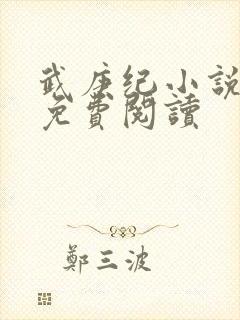 武庚纪小说
免費閱讀
鄭三波